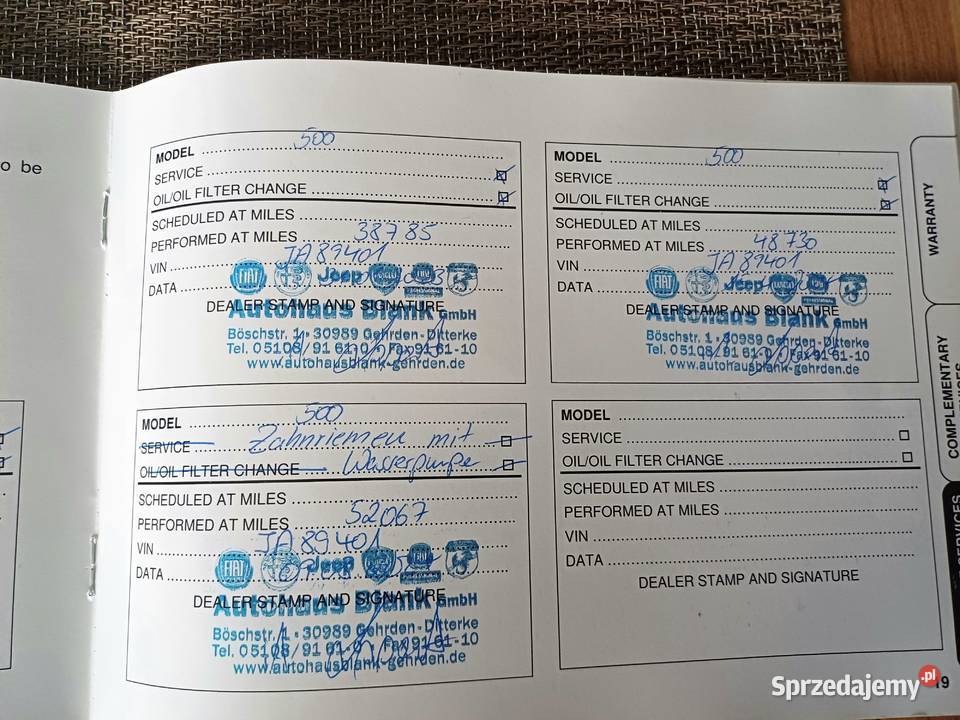 o be
MODEL 500
SERVICE
OIL/OIL FILTER CHANGE
SCHEDULED AT MILES
PERFORMED AT MILES 38785
VIN JA89401
DATA
FIAT Jeep
DEALER STAMP AND SIGNATURE
Autohaus Blank GmbH
Böschstr. 1 · 30989 Gehrden-Ditterke
Tel. 05108/91 61-0 Fax 91 61-10
www.autohausblank-gehrden.de
MODEL 500
SERVICE
OIL/OIL FILTER CHANGE
SCHEDULED AT MILES
PERFORMED AT MILES 48730
VIN JA89401
DATA
FIAT Jeep
DEALER STAMP AND SIGNATURE
Autohaus Blank GmbH
Böschstr. 1 · 30989 Gehrden-Ditterke
Tel. 05108/91 61-0 Fax 91 61-10
www.autohausblank-gehrden.de
MODEL 500
SERVICE Zahnriemen mit
OIL/OIL FILTER CHANGE Wasserpumpe
SCHEDULED AT MILES
PERFORMED AT MILES 52067
VIN JA89401
DATA
FIAT Jeep
DEALER STAMP AND SIGNATURE
Autohaus Blank GmbH
Böschstr. 1 · 30989 Gehrden-Ditterke
Tel. 05108/91 61-0 Fax 91 61-10
www.autohausblank-gehrden.de
MODEL
SERVICE
OIL/OIL FILTER CHANGE
SCHEDULED AT MILES
PERFORMED AT MILES
VIN
DATA
DEALER STAMP AND SIGNATURE
WARRANTY
COMPLEMENTARY
SERVICES
19
Sprzedajemy.pl